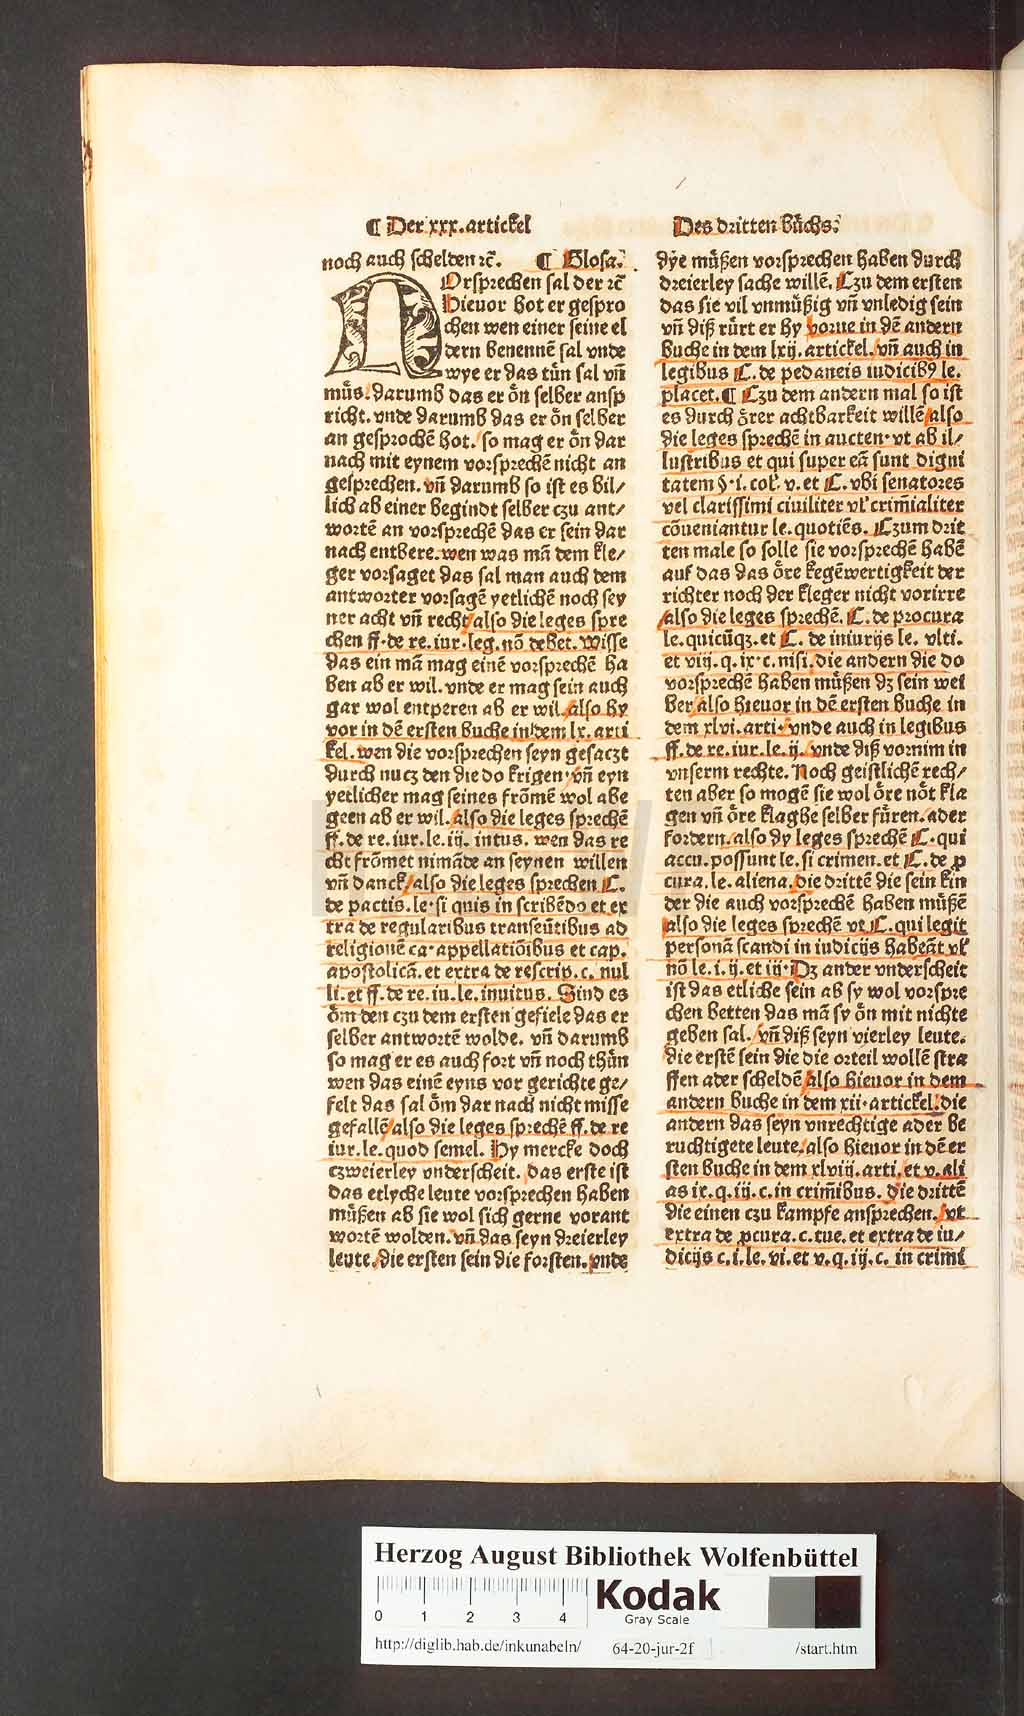 ¶ Der xxx. artickel
Des dritten bůchs.
noch auch schelden ꝛc̃. ¶ Glosa.
VOrsprechen sal der ꝛc̃
Hieuor hot er gespro
chen wen einer seine el
dern benennẽ sal vnde
wye er das tůn sal vñ
můs. darumb das er ön selber ansp
richt. vnde darumb das er ön selber
an gesprochẽ hot. so mag er ön dar
nach mit eynem vorsprechẽ nicht an
gesprechen. vñ darumb so ist es bil/
lich ab einer begindt selber czu ant/
wortẽ an vorsprechẽ das er sein dar
nach entbere. wen was mã dem kle/
ger vorsaget das sal man auch dem
antworter vorsagẽ yetlichẽ noch sey
ner acht vñ recht/ also die leges spre
chen ff. de re. iur. leg. nõ debet. Wisse
das ein mã mag einẽ vorsprechẽ ha
ben ab er wil. vnde er mag sein auch
gar wol entperen ab er wil. also hy
vor in dẽ ersten buche in dem lx. arti
kel. wen die vorsprechen seyn gesaczt
durch nucz den die do krigen. vñ eyn
yetlicher mag seines frömẽ wol abe
geen ab er wil. also die leges sprechẽ
ff. de re. iur. le. iij. intus. wen das re
cht frömet nimãde an seynen willen
vñ danck/ also die leges sprechen C.
de pactis. le. si quis in scribẽdo et ex
tra de regularibus transeũtibus ad
religionẽ ca. appellatiõibus et cap.
apostolicã. et extra de rescrip. c. nul
li. et ff. de re. iu. le. inuitus. Sind es
öm den czu dem ersten gefiele das er
selber antwortẽ wolde. vñ darumb
so mag er es auch fort vñ noch thůn
wen das einẽ eyns vor gerichte ge/
felt das sal öm dar nach nicht misse
gefallẽ/ also die leges sprechẽ ff. de re
iur. le. quod semel. Hy mercke doch
czweierley vnderscheit. das erste ist
das etlyche leute vorsprechen haben
můßen ab sie wol sich gerne vorant
wortẽ wolden. vñ das seyn dreierley
leute. die ersten sein die forsten. vnde
dýe můßen vorsprechen haben durch
dreierley sache willẽ. Czu dem ersten
das sie vil vnmůßig vñ vnledig sein
vñ diß růrt er hy vorne in dẽ andern
buche in dem lxij. artickel. vñ auch in
legibus C. de pedaneis iudicibꝰ le.
placet. ¶ Czu dem andern mal so ist
es durch örer achtbarkeit willẽ/ also
die leges sprechẽ in aucten. vt ab il/
lustribus et qui super eã sunt digni
tatem §. i. col. v. et C. vbi senatores
vel clarissimi ciuiliter vl' crim̃ialiter
cõueniantur le. quotiẽs. Czum drit
ten male so solle sie vorsprechẽ habẽ
auf das das öre kegẽwertigkeit der
richter noch der kleger nicht vorirre
also die leges sprechẽ. C. de procura
le. quicũqꝫ. et C. de iniurijs le. vlti.
et viij. q. ix. c. nisi. die andern die do
vorsprechẽ haben můßen dꝫ sein wei
ber/ also hieuor in dẽ ersten buche in
dem xlvi. arti. vnde auch in legibus
ff. de re. iur. le. ij. vnde diß vornim in
vnserm rechte. Noch geistlichẽ rech/
ten aber so mogẽ sie wol öre nöt kla
gen vñ öre klaghe selber fůren. ader
fordern/ also dy leges sprechẽ C. qui
accu. possunt le. si crimen. et C. de ꝓ
cura. le. aliena. die drittẽ die sein kin
der die auch vorsprechẽ haben můßẽ
also die leges sprechẽ vt C. qui legit
personã standi in iudicijs habeãt vl'
nõ le. i. ij. et iij. Dꝫ ander vnderscheit
ist das etliche sein ab sy wol vorspre
chen betten das mã sy ön mit nichte
geben sal. vñ diß seyn vierley leute.
die erstẽ sein die die orteil wollẽ stra
ffen ader scheldẽ/ also hieuor in dem
andern buche in dem xij. artickel. die
andern das seyn vnrechtige ader be
ruchtigete leute. also hieuor in dẽ er
sten buche in dem xlviij. arti. et v. ali
as ix. q. iij. c. in crim̃ibus. die drittẽ
die einen czu kampfe ansprechen. vt
extra de ꝓcura. c. tue. et extra de iu/
dicijs c. i. le. vi. et v. q. iij. c. in crimi
Herzog August Bibliothek Wolfenbüttel
0 1 2 3 4
Kodak
Gray Scale
http://diglib.hab.de/inkunabeln/ 64-20-jur-2f /start.htm